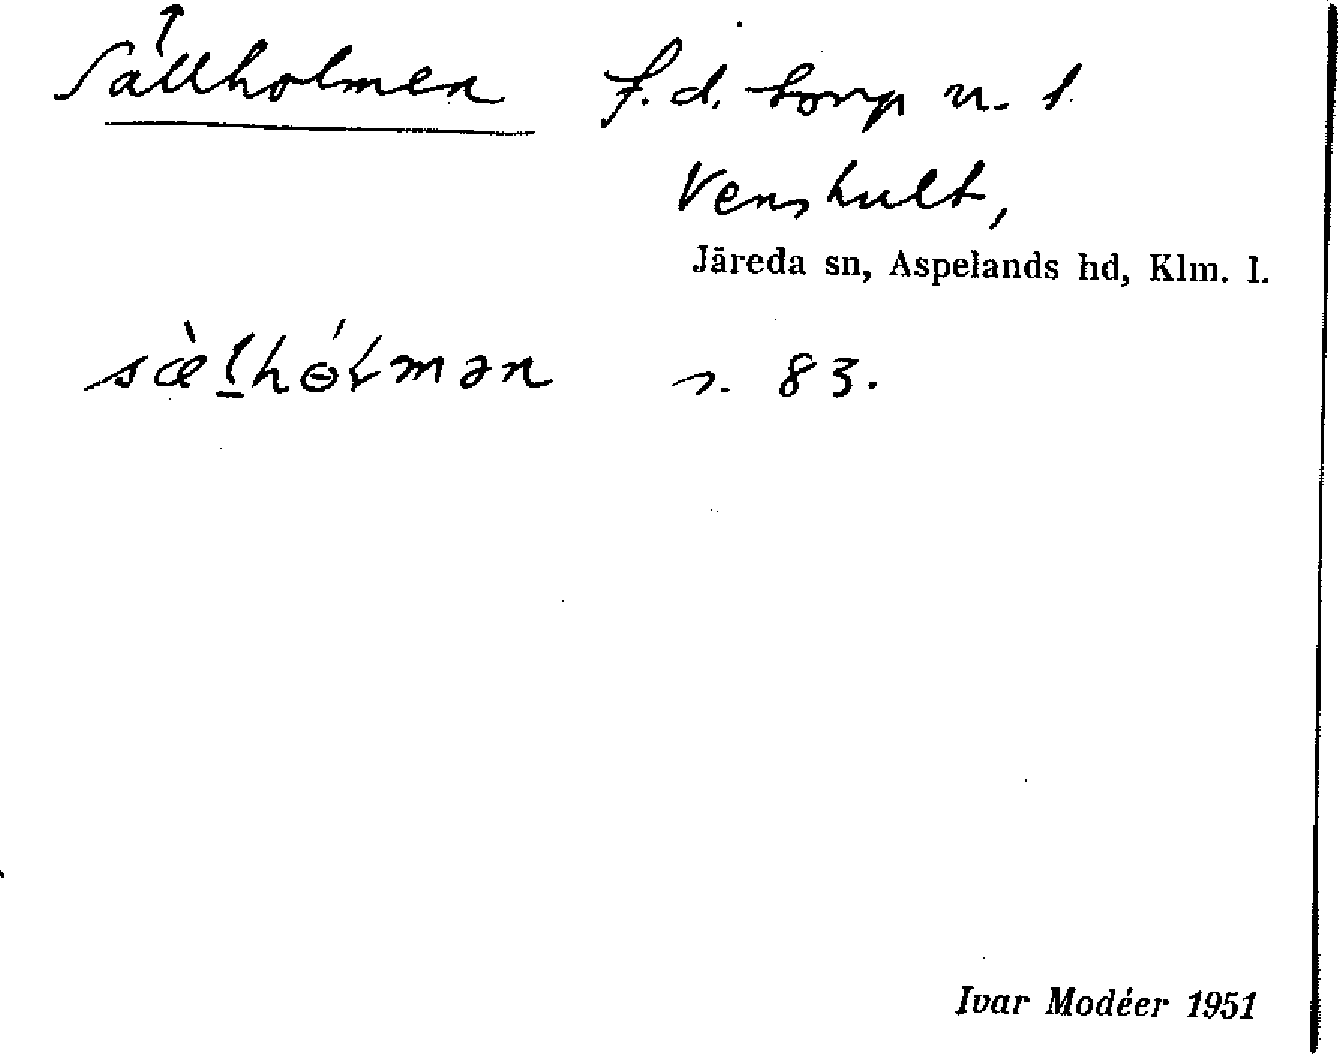 Sällholmen f.d. torp u. l.
Venshult,
Järeda sn, Aspelands hd, Klm. l.
sæ̀lhɵ́lmən s. 83.
Ivar Modéer 1951